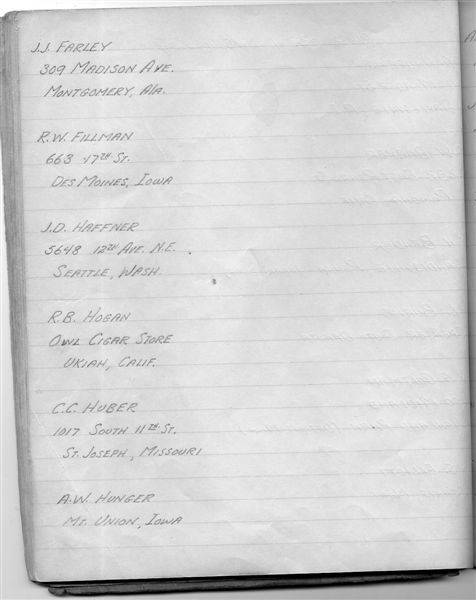 J.J. FARLEY
309 MADISON AVE.
MONTGOMERY, ALA.
R.W. FILLMAN
663 17TH ST.
DES MOINES, IOWA
J.D. HAFFNER
5648 12TH AVE. N.E.
SEATTLE, WASH.
R.B. HOGAN
OWL CIGAR STORE
UKIAH, CALIF.
C.C. HUBER
1017 SOUTH 11TH ST.
ST. JOSEPH, MISSOURI
A.W. HUNGER
MT. UNION, IOWA